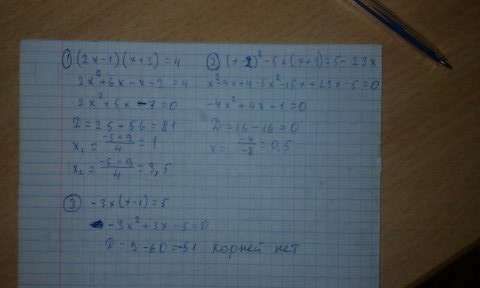 ① (2x-1)(x+3)=4
2x²+6x-x-3=4
2x²+5x-7=0
D=25+56=81
x₁=(-5+9)/4=1
x₂=(-5-9)/4=3,5
② (x-2)²-5x(x+3)=5-23x
x²-4x+4-5x²-15x+23x-5=0
-4x²+4x-1=0
D=16-16=0
x=-4/-8=0,5
③ -3x(x-1)=5
-3x²+3x-5=0
D=9-60=-51 Корней нет